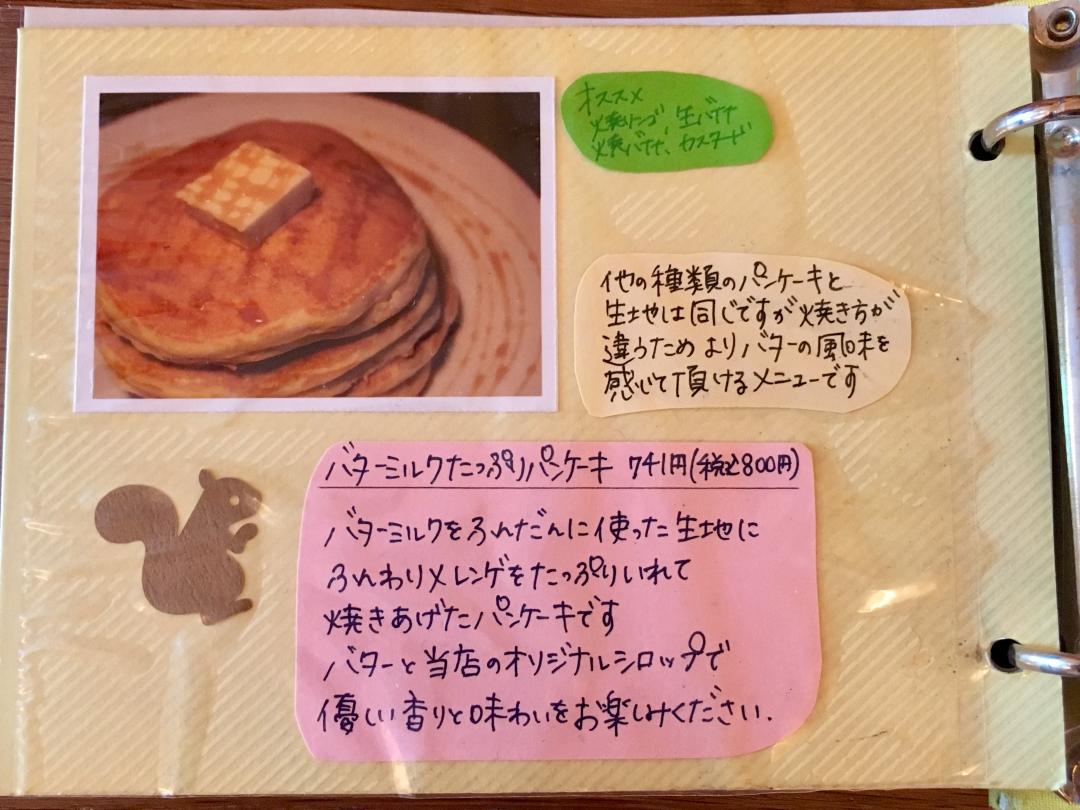 オススメ
焼リンゴ 生バナナ
焼バナナ、カスタード
他の種類のパンケーキと
生地は同じですが焼き方が
違うためよりバターの風味を
感じて頂けるメニューです
バターミルクたっぷりパンケーキ 741円(税込800円)
バターミルクをふんだんに使った生地に
ふんわりメレンゲをたっぷりいれて
焼きあげたパンケーキです
バターと当店のオリジナルシロップで
優しい香りと味わいをお楽しみください.